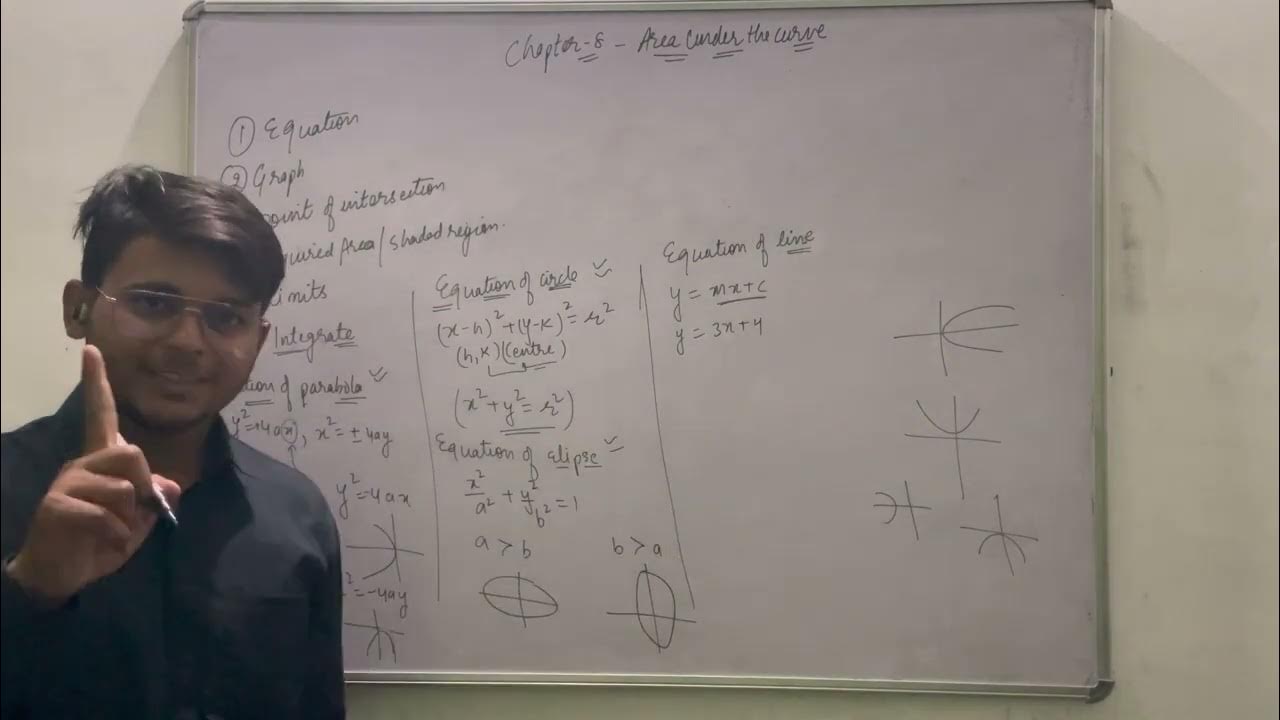 Chapter-8 - Area Under the curve
① Equation
② Graph
point of intersection
quired Area / Shaded region.
imits
Integrate
tion of parabola
y²=+4ax, x²=±4ay
y²=-4ax
²=-4ay
Equation of circle
(x-h)²+(y-k)²=r²
(h,k)(centre)
(x²+y²=r²)
Equation of elipse
x²/a² + y²/b² = 1
a > b
b > a
Equation of line
y = mx+c
y = 3x+4